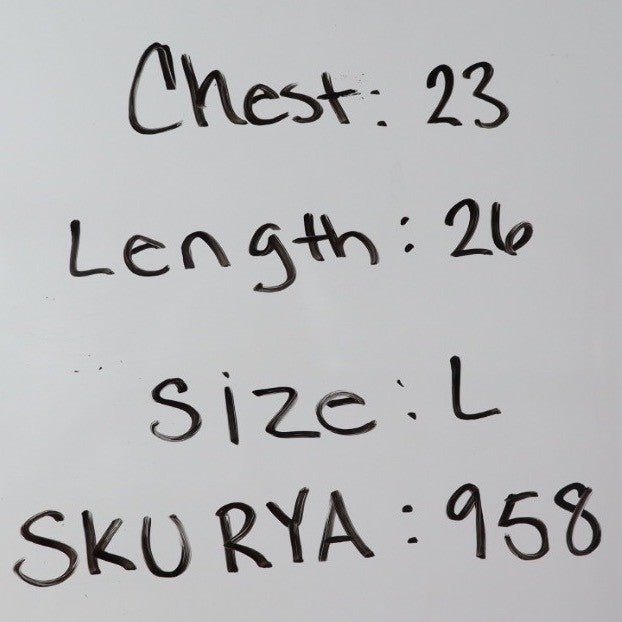 Chest: 23
Length: 26
Size: L
SKU RYA: 958